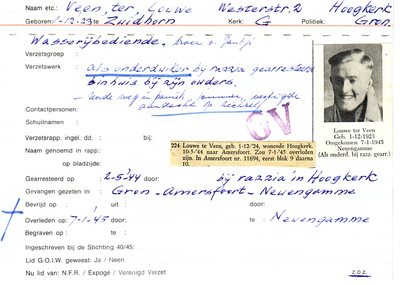 Naam etc.: Veen, ter, Louwe Westerstr. 2 Hoogkerk
Geboren: 1-12-23 te Zuidhorn Kerk: G Politiek: Gron.
Wasserijbediende,
Verzetsgroep :
Verzetswerk : als onderduiker bij razzia gearresteerd
in huis bij zijn ouders.
Contactpersonen:
Schuilnamen :
GV
Verzetsrapp. ingel. dd. : bij:
Naam genoemd in rapp. :
op bladzijde:
224 Louwe te Veen, geb. 1-12-'24, wonende Hoogkerk,
10-5-'44 naar Amersfoort. Zou 7-1-'45 overleden
zijn. In Amersfoort nr. 11694, eerst blok 9 daarna
10.
Louwe ter Veen
Geb. 1-12-1923
Omgekomen 7-1-1945
Neuengamme
(Als onderd. bij razz. gearr.)
Gearresteerd op : 2-5-'44 bij razzia in Hoogkerk
Gevangen gezeten in: Gron - Amersfoort - Neuengamme
Bevrijd op : uit door: te :
Overleden op : 7-1-'45 door: te : Neuengamme
Begraven op : te :
Ingeschreven bij de Stichting 40/45:
Lid G.O.I.W. geweest: Ja / Neen
Nu lid van: N.F.R. / Expogé / Verenigd Verzet
z.o.z.